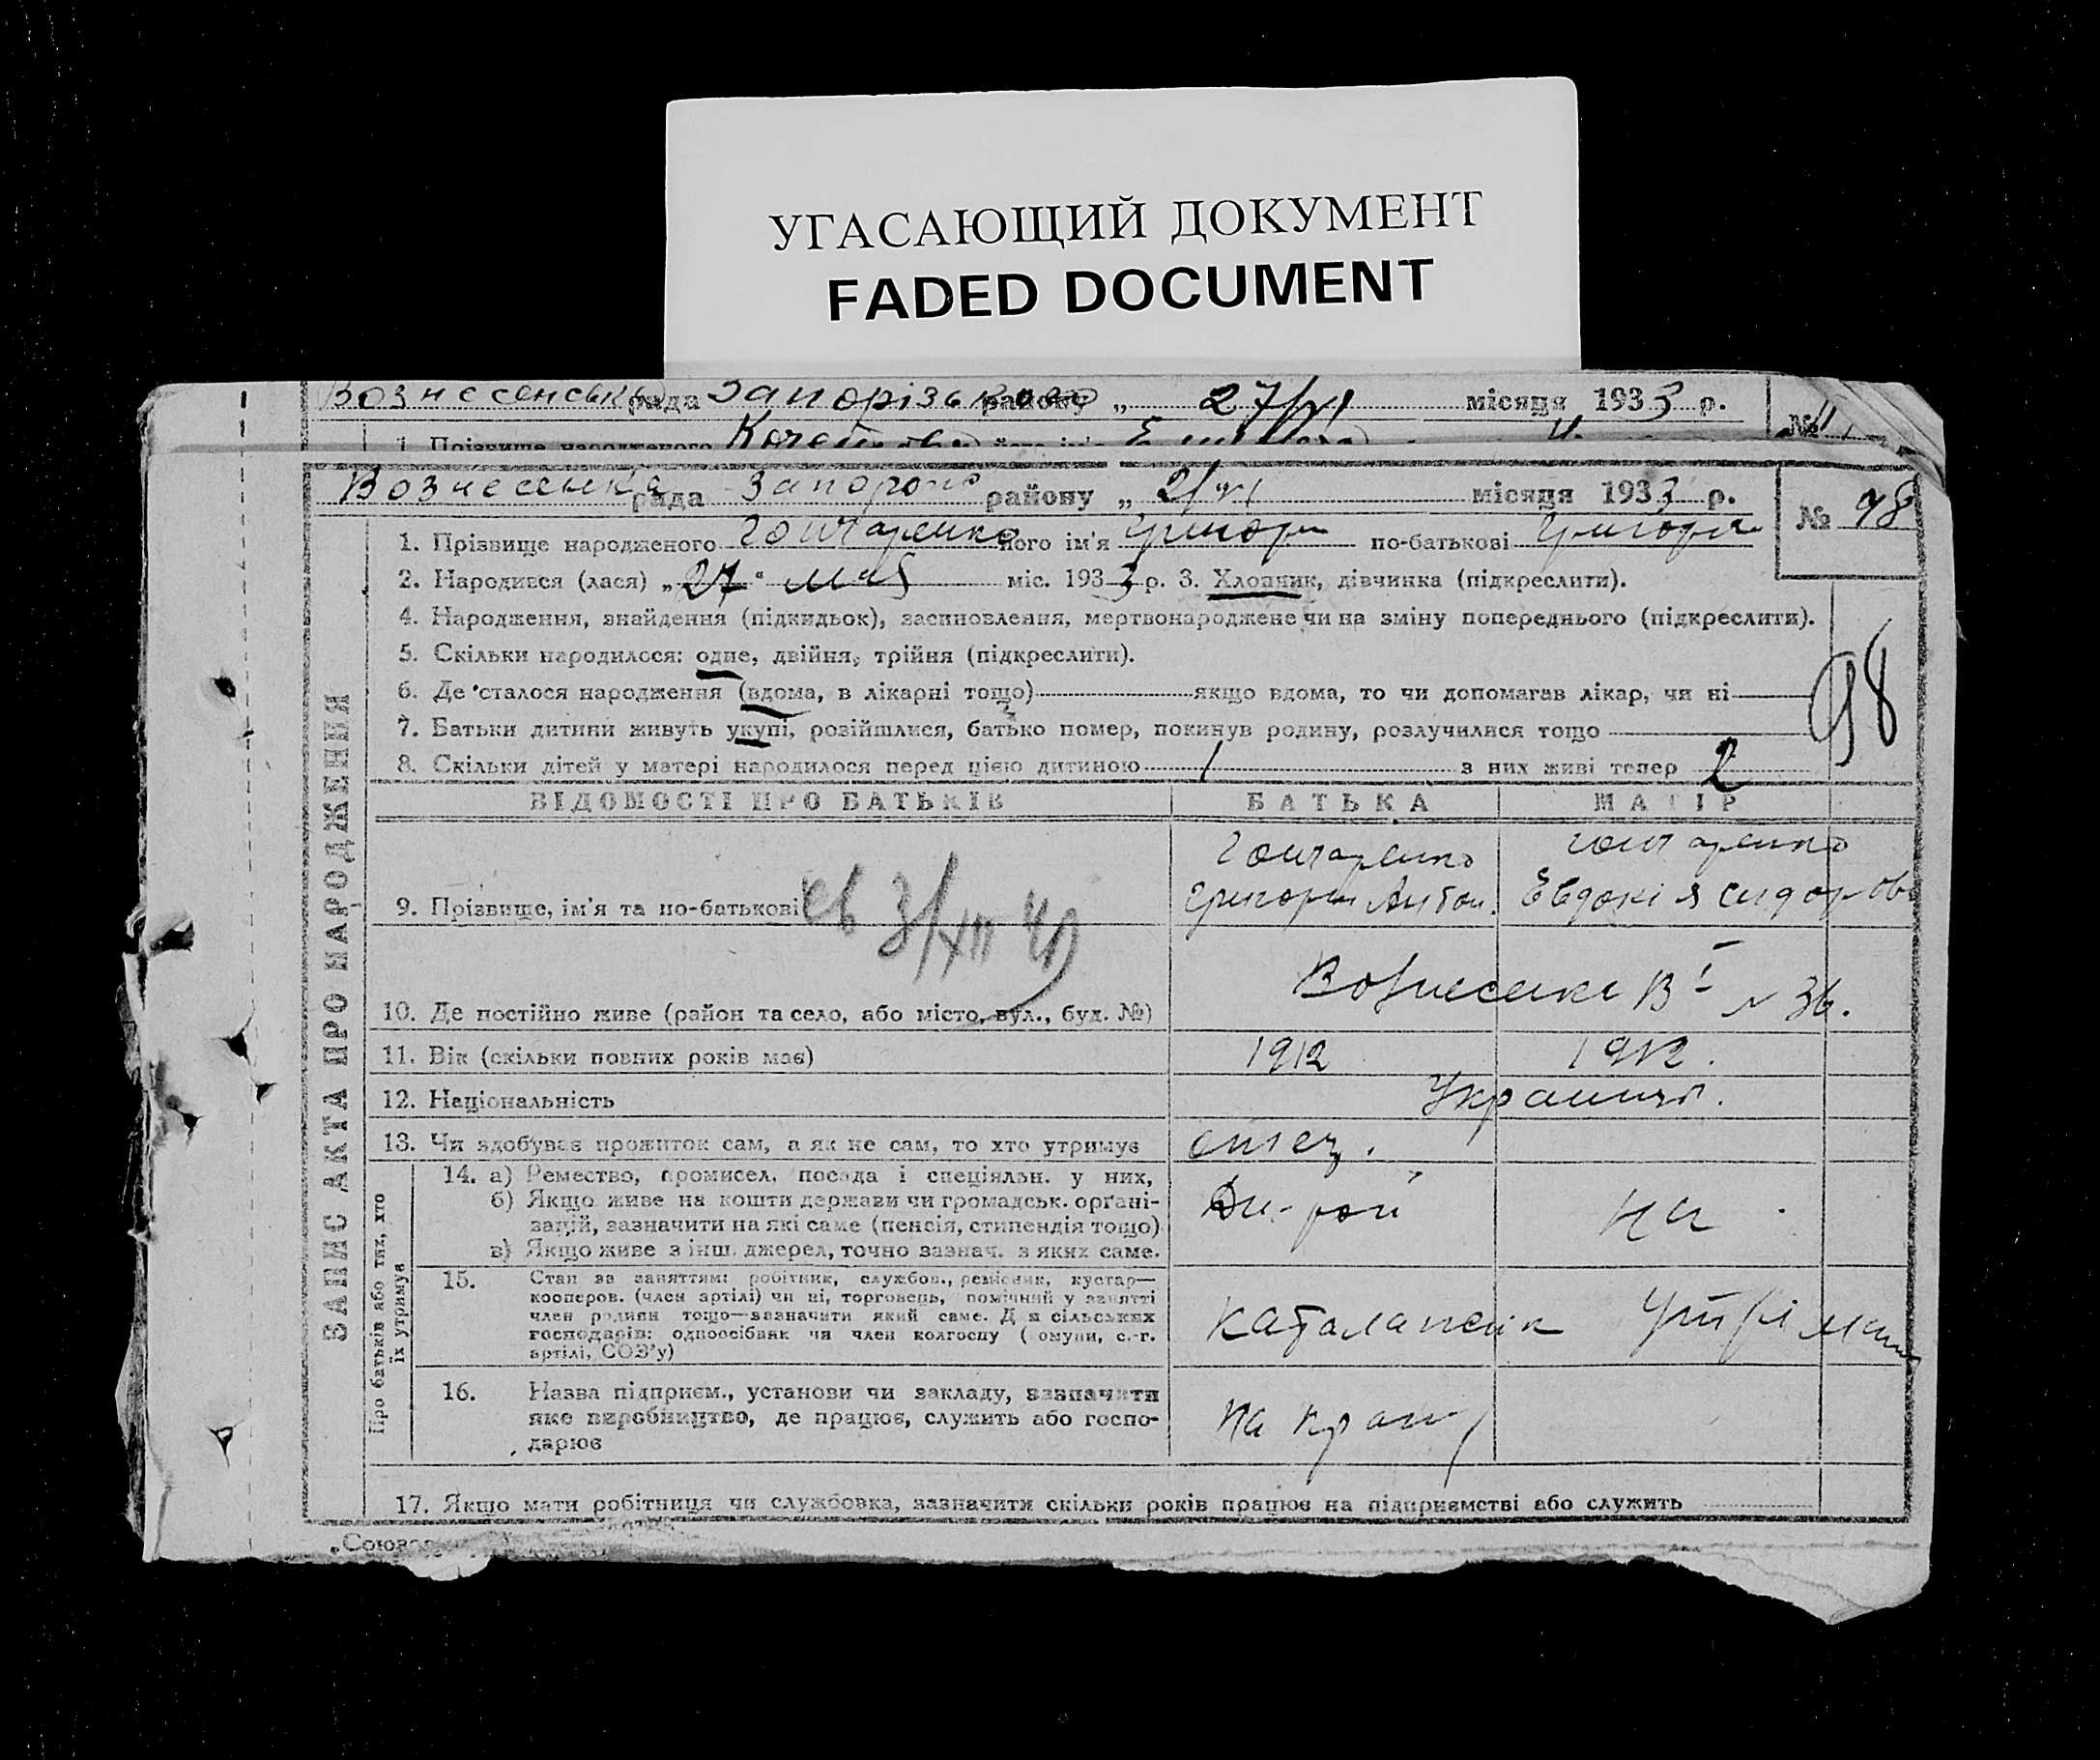 УГАСАЮЩИЙ ДОКУМЕНТ
FADED DOCUMENT
Вознесенська рада Запорізького району „ 27/VI місяця 1933 р.
1. Прізвище народженого
№
Вознесенка рада Запороз району „ 2/VI місяця 1933 р.
№ 98
1. Прізвище народженого Гончаренко його ім'я Григори по-батькові Григори
2. Народився (лася) „27" мая міс. 1933 р. 3. Хлопчик, дівчинка (підкреслити).
4. Народження, знайдення (підкидьок), засиновлення, мертвонароджене чи на зміну попереднього (підкреслити).
5. Скільки народилося: одне, двійня, трійня (підкреслити).
6. Де сталося народження (вдома, в лікарні тощо) якщо вдома, то чи допомагав лікар, чи ні
98
7. Батьки дитини живуть укупі, розійшлися, батько помер, покинув родину, розлучилися тощо
8. Скільки дітей у матері народилося перед цією дитиною 1 з них живі тепер 2
ВІДОМОСТІ ПРО БАТЬКІВ БАТЬКА МАТІР
Гончаренко Гончаренко
9. Прізвище, ім'я та по-батькові Григори Антон. Евдокія Сидоров
Вознесенка В I № 36.
10. Де постійно живе (район та село, або місто, вул., буд. №)
11. Вік (скільки повних років має) 1912 1912.
12. Національність Украинці.
13. Чи здобуває прожиток сам, а як не сам, то хто утримує отец.
14. а) Ремество, промисел, посада і спеціяльн. у них,
б) Якщо живе на кошти держави чи громадськ. органі-
зацій, зазначити на які саме (пенсія, стипендія тощо)
в) Якщо живе з інш. джерел, точно зазнач. з яких саме.
15. Стан за заняттям: робітник, службов., ремісник, кустар—
кооперов. (член артілі) чи ні, торговець, помічний у занятті
член родини тощо—зазначити який саме. Для сільських
господарів: одноосібник чи член колгоспу (комуни, с.-г.
артілі, СОЗ'у)
16. Назва підприєм., установи чи закладу, зазначити
яке виробництво, де працює, служить або госпо-
дарює
17. Якщо мати робітниця чи службовка, зазначити скільки років працює на підприємстві або служить
ЗАПИС АКТА ПРО НАРОДЖЕННЯ
Про батьків або тих, хто
їх утримує